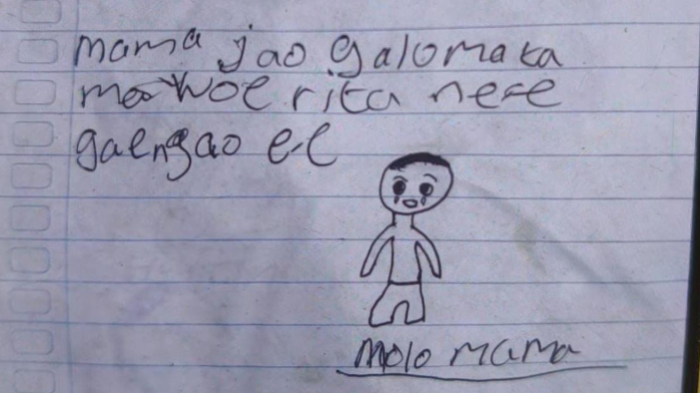 mama jao galomaka
ma woe rita nese
gaengao e-e
molo mama